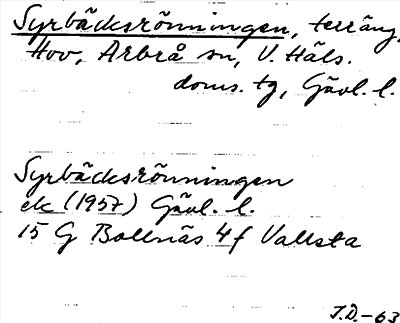 Syrbäcksrönningen, terräng,
Hov, Arbrå sn, V. Häls.
doms. tg, Gävl. l.
Syrbäcksrönningen
ek (1957) Gävl. l.
15 G Bollnäs 4f Vallsta
J.D.-63